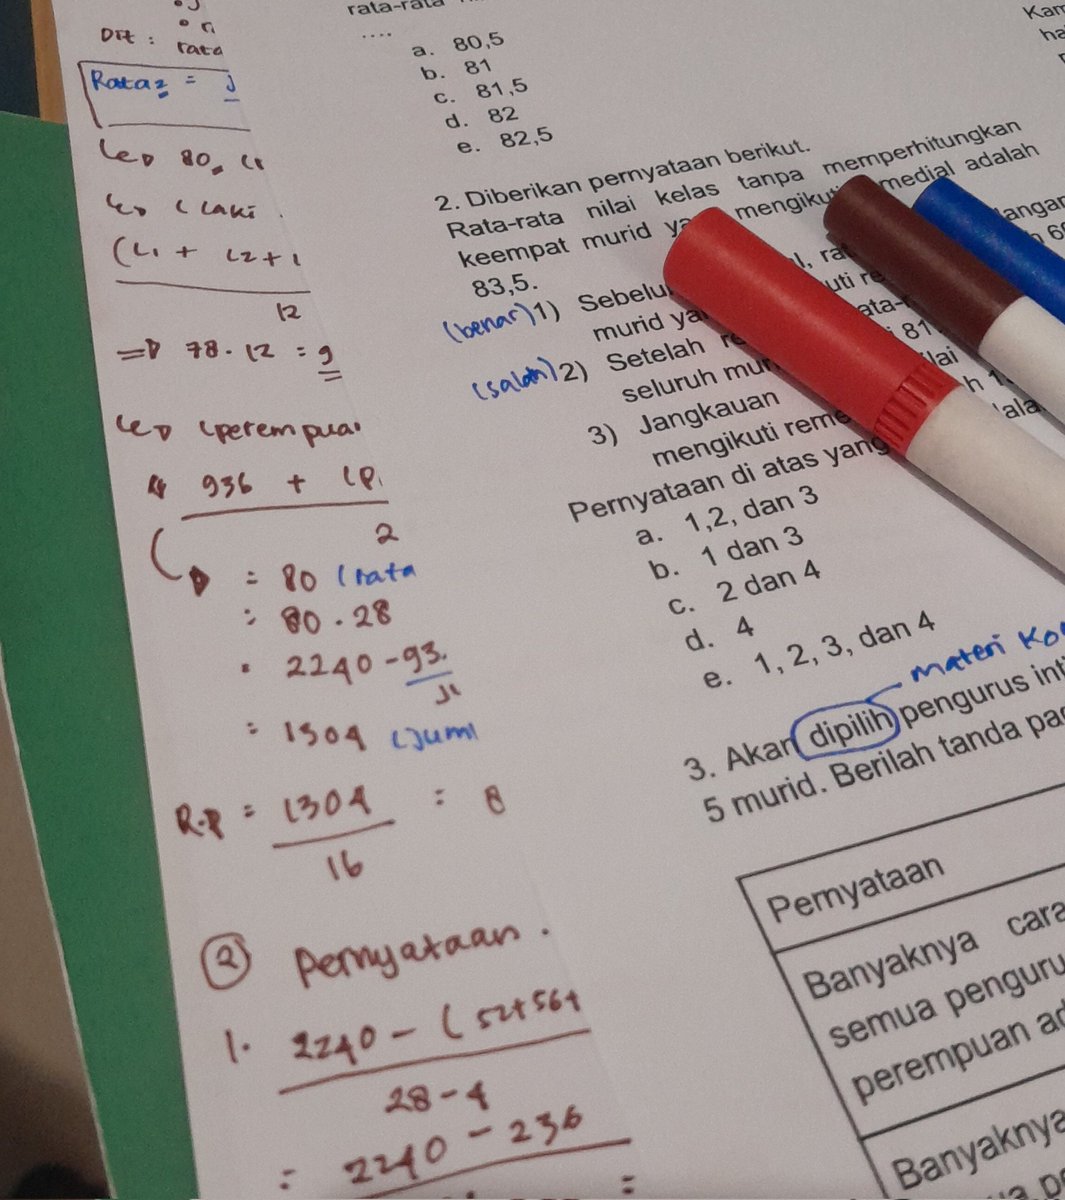 Dit :
rata
Rata2 =
80,
( Laki
(L1 + L2 +
12
=> 78 . 12 = 9
(perempua
936 + (P
2
= 80 (rata
= 80 . 28
2240 - 93
= 1304 (Juml
R.P = 1304 = 8
16
② Pernyataan .
1. 2240 - ( 52+56+
28 - 4
= 2240 - 236
=
rata-rata
....
a. 80,5
b. 81
c. 81,5
d. 82
e. 82,5
2. Diberikan pernyataan berikut.
Rata-rata nilai kelas tanpa memperhitungkan
keempat murid mengikuti medial adalah
83,5.
(benar) 1) Sebelu
murid
uti re
(salah) 2) Setelah
seluruh mur
81
3) Jangkauan
mengikuti reme
Pernyataan di atas yang
a. 1,2, dan 3
b. 1 dan 3
c. 2 dan 4
d. 4
e. 1, 2, 3, dan 4
materi Ko
3. Akan dipilih pengurus inti
5 murid. Berilah tanda pa
Pernyataan
Banyaknya cara
semua penguru
perempuan ad
Banyaknya